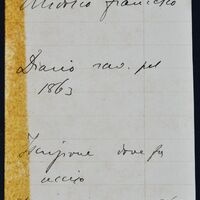 francesco
Diario rav. pel
1863
Iscrizione dove fu
ucciso